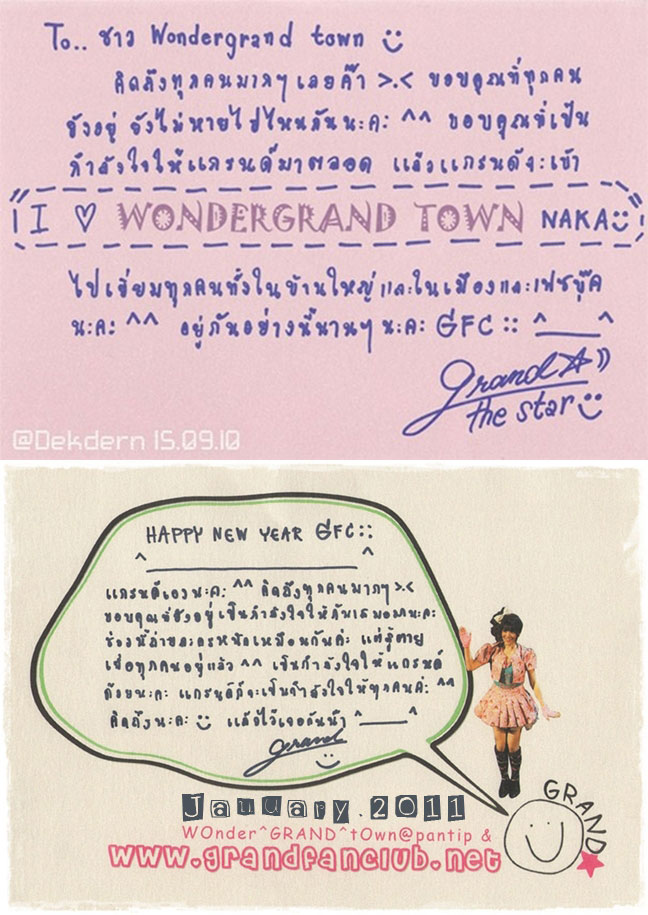 To.. ชาว Wondergrand town
คิดถึงทุกคนมากๆเลยค๊า >.< ขอบคุณที่ทุกคน
ยังอยู่ ยังไม่หายไปไหนกันนะคะ ^^ ขอบคุณที่เป็น
กำลังใจให้แกรนด์มาตลอด แล้วแกรนด์จะเข้า
I ♡ WONDERGRAND TOWN NAKA
ไปเยี่ยมทุกคนทั้งในบ้านใหญ่และในเมืองและเฟซบุ๊ค
นะคะ ^^ อยู่กันอย่างนี้นานๆนะคะ GFC :: ^____^
grand☆))
the star
@Dekdern 15.09.10
HAPPY NEW YEAR GFC::
^____________________^
แกรนด์เองนะคะ ^^ คิดถึงทุกคนมากๆ >.<
ขอบคุณที่ยังอยู่เป็นกำลังใจให้กันเสมอนะคะ
ช่วงนี้ถ่ายละครหนักเหมือนกันค่ะ แต่สู้ตาย
เพื่อทุกคนอยู่แล้ว ^^ เป็นกำลังใจให้แกรนด์
ด้วยนะคะ แกรนด์ก็จะเป็นกำลังใจให้ทุกคนค่ะ ^^
คิดถึงนะคะ แล้วไว้เจอกันน้า ^____^
grand
GRAND
January.2011
WOnder^GRAND^tOwn@pantip &
www.grandfanclub.net